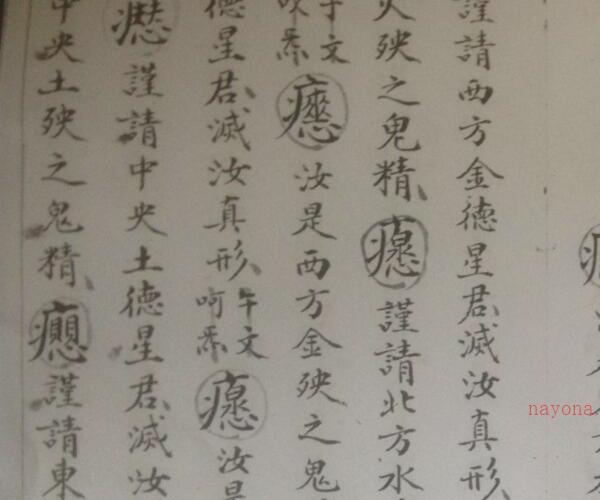 謹請西方金德星君滅汝真形
火殃之鬼精 謹請北方水
于文 汝是西方金殃之鬼
德星君滅汝真形 午文 呵 汝是
謹請中央土德星君滅汝
中央土殃之鬼精 謹請東
nayona